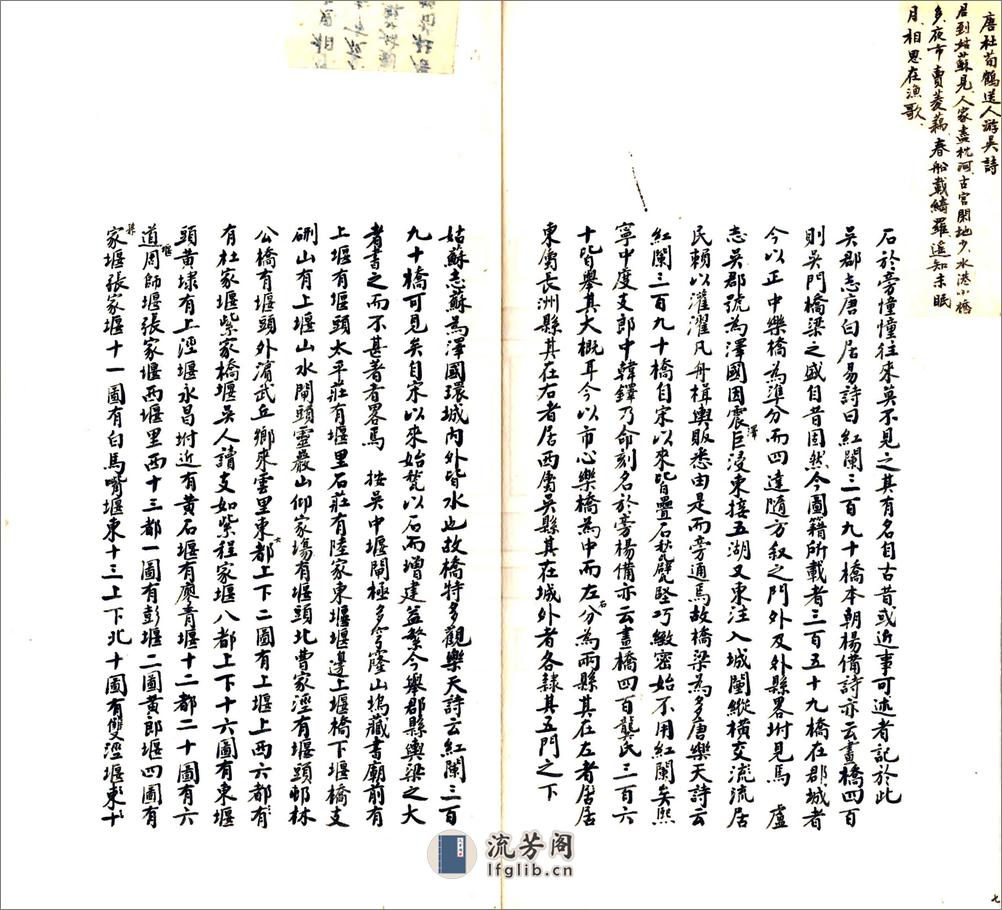 唐杜荀鶴送人游吳詩
君到姑蘇見人家盡枕河古宮閒地少水港小橋
多夜市賣菱藕春船載綺羅遙知未眠
月相思在漁歌
石於旁憧憧往來莫不見之其有名自古昔或近事可述者記於此
吳郡志唐白居易詩曰紅闌三百九十橋本朝楊備詩亦云畫橋四百
則吳門橋梁之盛自昔固然今圖籍所載者三百五十九橋在郡城者
今以正中樂橋為準分而四達隨方叙之門外及外縣畧坿見焉 盧
志吳郡號為澤國因震澤巨浸東接五湖又東注入城闉縱橫交流流居
民賴以灌濯凡舟楫輿販悉由是而旁通焉故橋梁為多唐樂天詩云
紅闌三百九十橋自宋以來皆疊石甃甓堅巧緻密始不用紅闌矣熙
寧中度支郎中韓鐸乃命刻名於旁楊備亦云畫橋四百龔氏三百六
十皆舉其大概耳今以市心樂橋為中而左右分為兩縣其在左者居居
東屬長洲縣其在右者居西屬吳縣其在城外者各隸其五門之下
姑蘇志蘇為澤國環城內外皆水也故橋特多觀樂天詩云紅闌三百
九十橋可見矣自宋以來始甃以石而增建益繁今舉郡縣輿梁之大
者書之而不甚著者畧焉 按吳中堰閘極多穹隆山塢藏書廟前有
上堰有堰頭太平莊有堰里石莊有陸家東堰堰邊上堰橋下堰橋支
硎山有上堰山水閘頭靈巖山仰家塲有堰頭北曹家涇有堰頭邨林
公橋有堰頭外濵武丘鄉來雲里東六都上下二圖有上堰上西六都有
有杜家堰紫家橋堰吳人讀支如紫程家堰八都上下十六圖有東堰
頭黃埭有上涇堰永昌坿近有黃石堰有廖青堰十二都二十圖有六
道堰周師堰張家堰西堰里西十三都一圖有彭堰二圖黃郎堰四圖有
家堰張家堰十一圖有白馬嘴堰東十三上下北十圖有雙涇堰東十
七
流芳阁
lfglib.cn